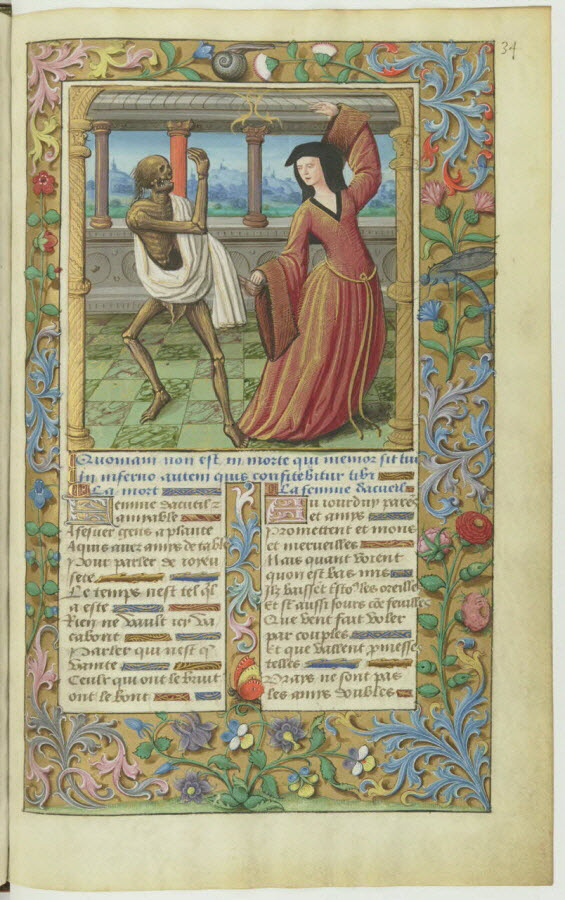 34
Quoniam non est in morte qui memor sit tui
In inferno autem quis confitebitur tibi
La mort
Femme dacueil
amyable
A festier gens a plante
Aquis avez amys de table
Pour parler de joyeu
sete
Le temps nest tel quil
a este
Rien ne vault icy va
cabont
Parler qui nest q
vanite
Ceulx qui ont le bruit
ont le bont
La femme dacueil
Au jourduy pares
et amys
Promettent et mons
et merveilles
Mais quant voient
quon est bas mis
Ilz baissent les oreille
Et st aussi sours cõe feuilles
Que vent fait voler
par couples
Et que vallent pmesse
telles
Draps ne sont pas
les amys doubles